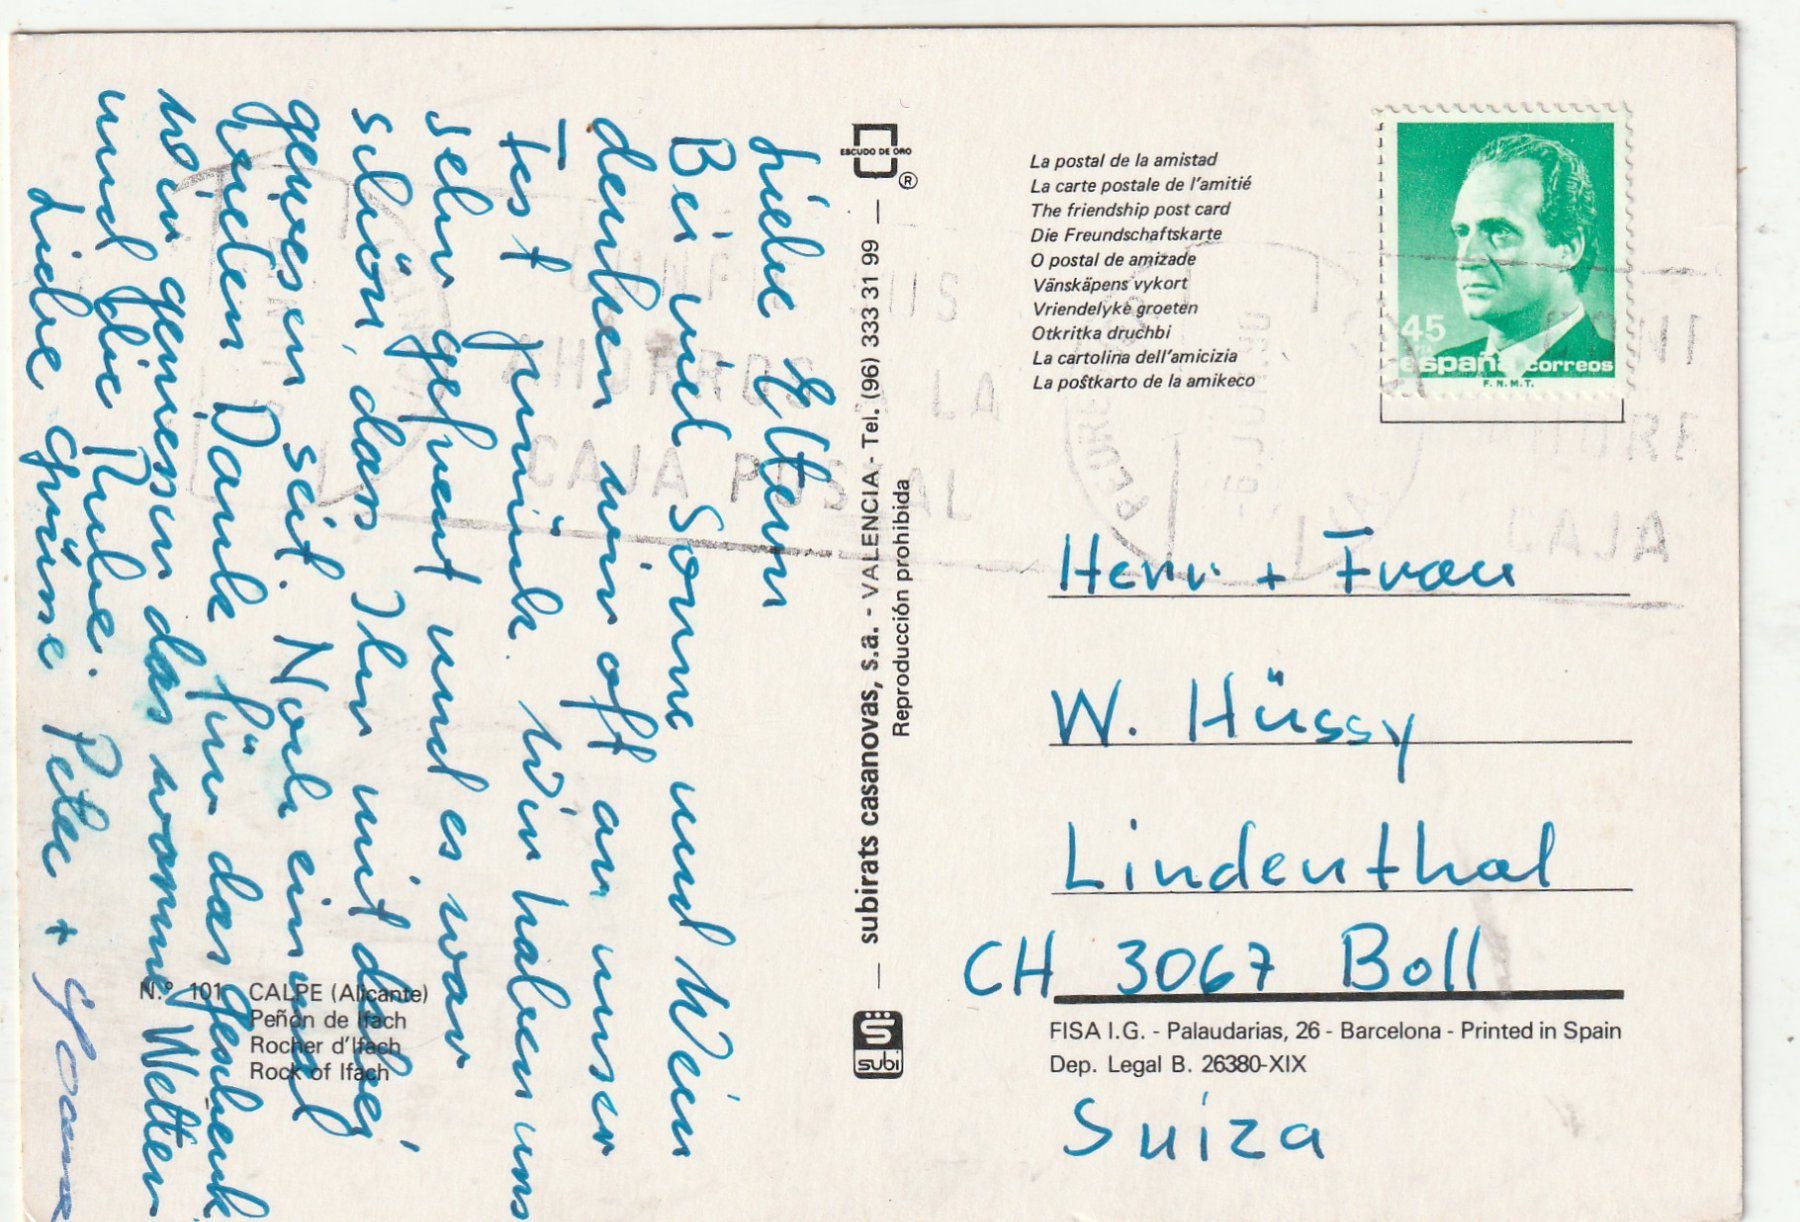 Liebe Eltern
Bei viel Sonne und Wein
denken wir oft an unser
Fest zurück. Wir haben uns
sehr gefreut und es war
schön, dass Ihr mit dabei
gewesen seit. Noch einmal
vielen Dank für das Geschenk.
Wir geniessen das warme Wetter
und die Ruhe.
Liebe Grüsse Peter +
N.º 101 CALPE (Alicante)
Peñón de Ifach
Rocher d'Ifach
Rock of Ifach
ESCUDO DE ORO
®
— subirats casanovas, s.a. - VALENCIA - Tel. (96) 333 31 99 —
Reproducción prohibida
subi
La postal de la amistad
La carte postale de l'amitié
The friendship post card
Die Freundschaftskarte
O postal de amizade
Vänskäpens vykort
Vriendelyke groeten
Otkritka druchbi
La cartolina dell'amicizia
La poŝtkarto de la amikeco
45
España correos
F.N.M.T.
AHORROS LA
CAJA POSTAL
Herr + Frau
W. Hüssy
Lindenthal
CH 3067 Boll
FISA I.G. - Palaudarias, 26 - Barcelona - Printed in Spain
Dep. Legal B. 26380-XIX
Suiza